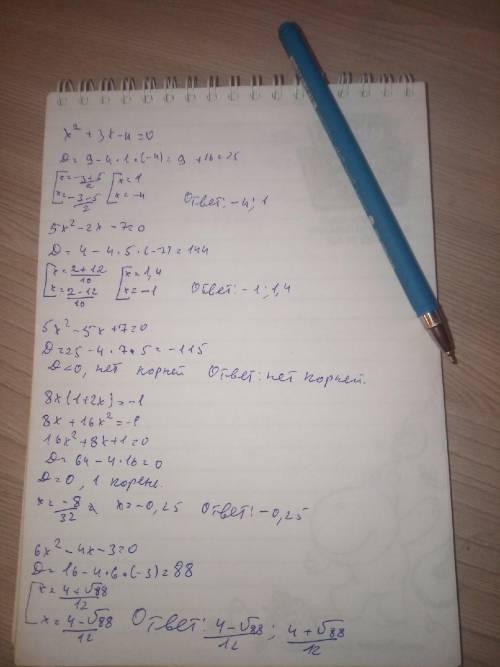 x² + 3x - 4 = 0
D = 9 - 4 · 1 · (-4) = 9 + 16 = 25
[x = -3+5/2 [x = 1
[x = -3-5/2 [x = -4 Ответ: -4; 1
5x² - 2x - 7 = 0
D = 4 - 4 · 5 · (-7) = 144
[x = 2+12/10 [x = 1,4
[x = 2-12/10 [x = -1 Ответ: -1; 1,4
5x² - 5x + 7 = 0
D = 25 - 4 · 7 · 5 = -115
D < 0, нет корней Ответ: нет корней.
8x(1+2x) = -1
8x + 16x² = -1
16x² + 8x + 1 = 0
D = 64 - 4 · 16 = 0
D = 0, 1 корень.
x = -8/32 x = -0,25 Ответ: -0,25
6x² - 4x - 3 = 0
D = 16 - 4 · 6 · (-3) = 88
[x = 4+√88/12
[x = 4-√88/12 Ответ: 4-√88/12; 4+√88/12